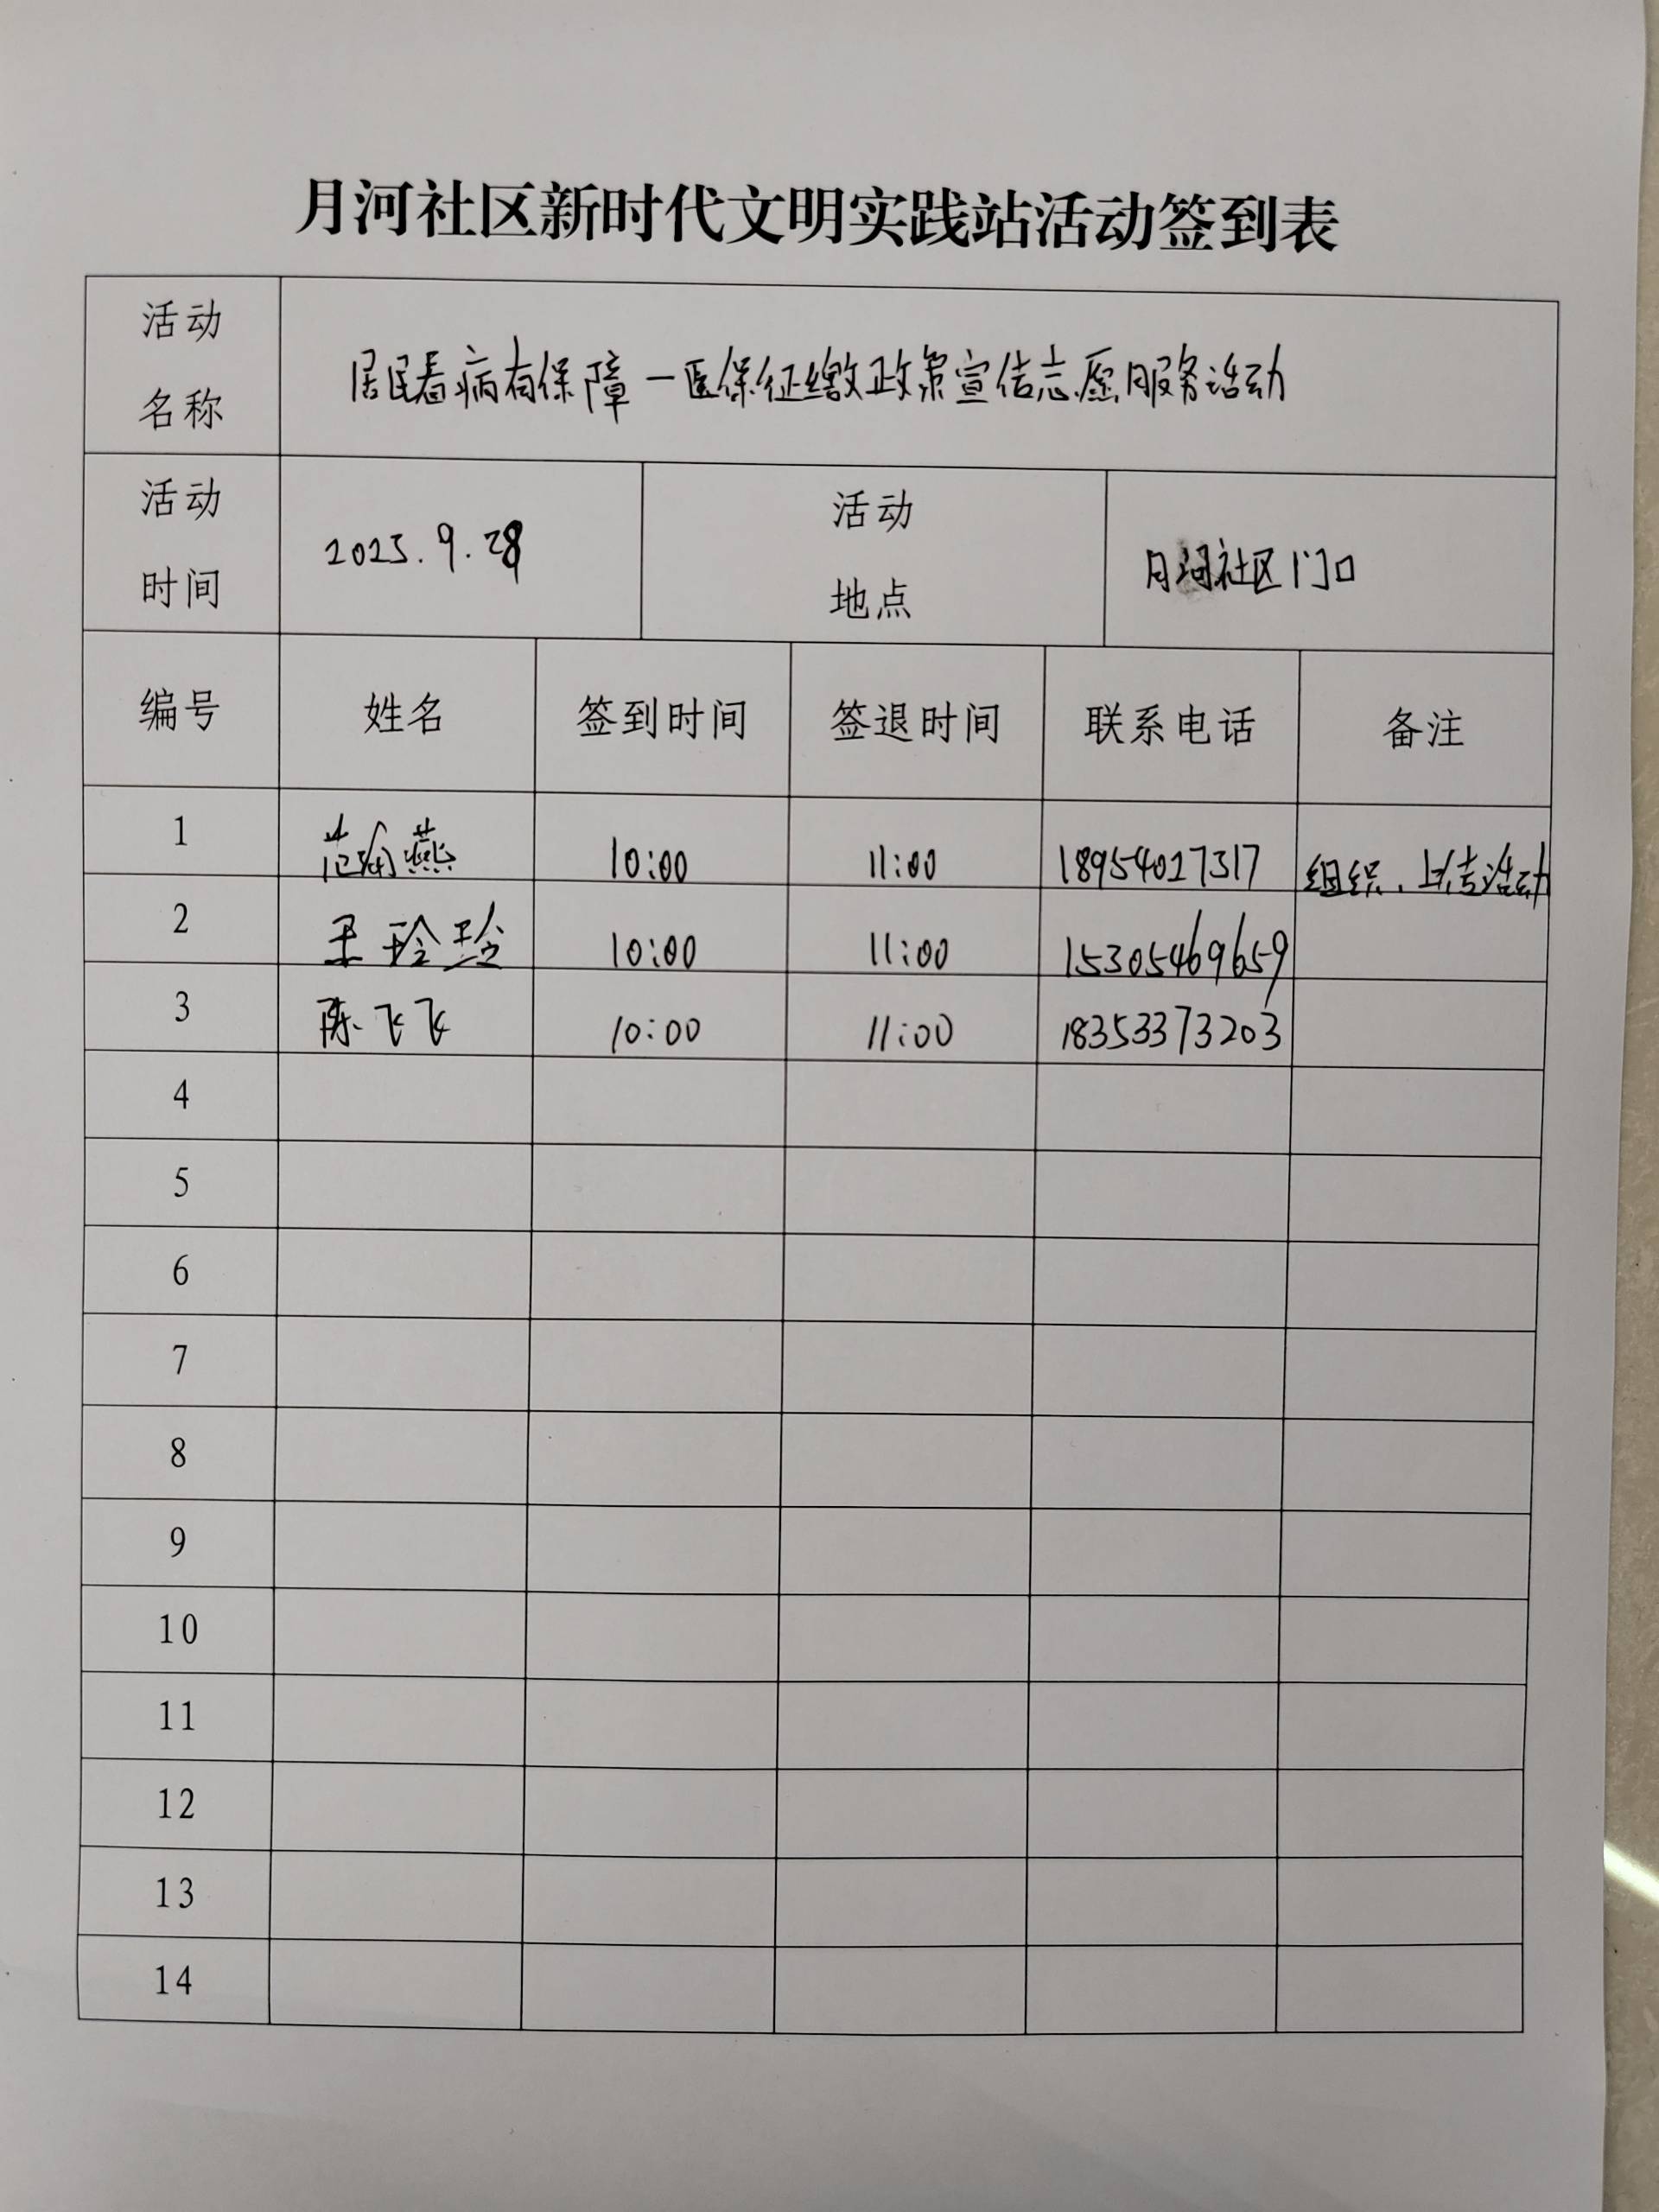 月河社区新时代文明实践站活动签到表
活动名称 居民看病有保障一医保征缴政策宣传志愿服务活动
活动时间 2025.9.28 活动地点 月河社区门口
编号 姓名 签到时间 签退时间 联系电话 备注
1 范 燕 10:00 11:00 18954027317 组织、上传活动
2 王玲玲 10:00 11:00 15305469659
3 陈飞飞 10:00 11:00 18353373203
4
5
6
7
8
9
10
11
12
13
14